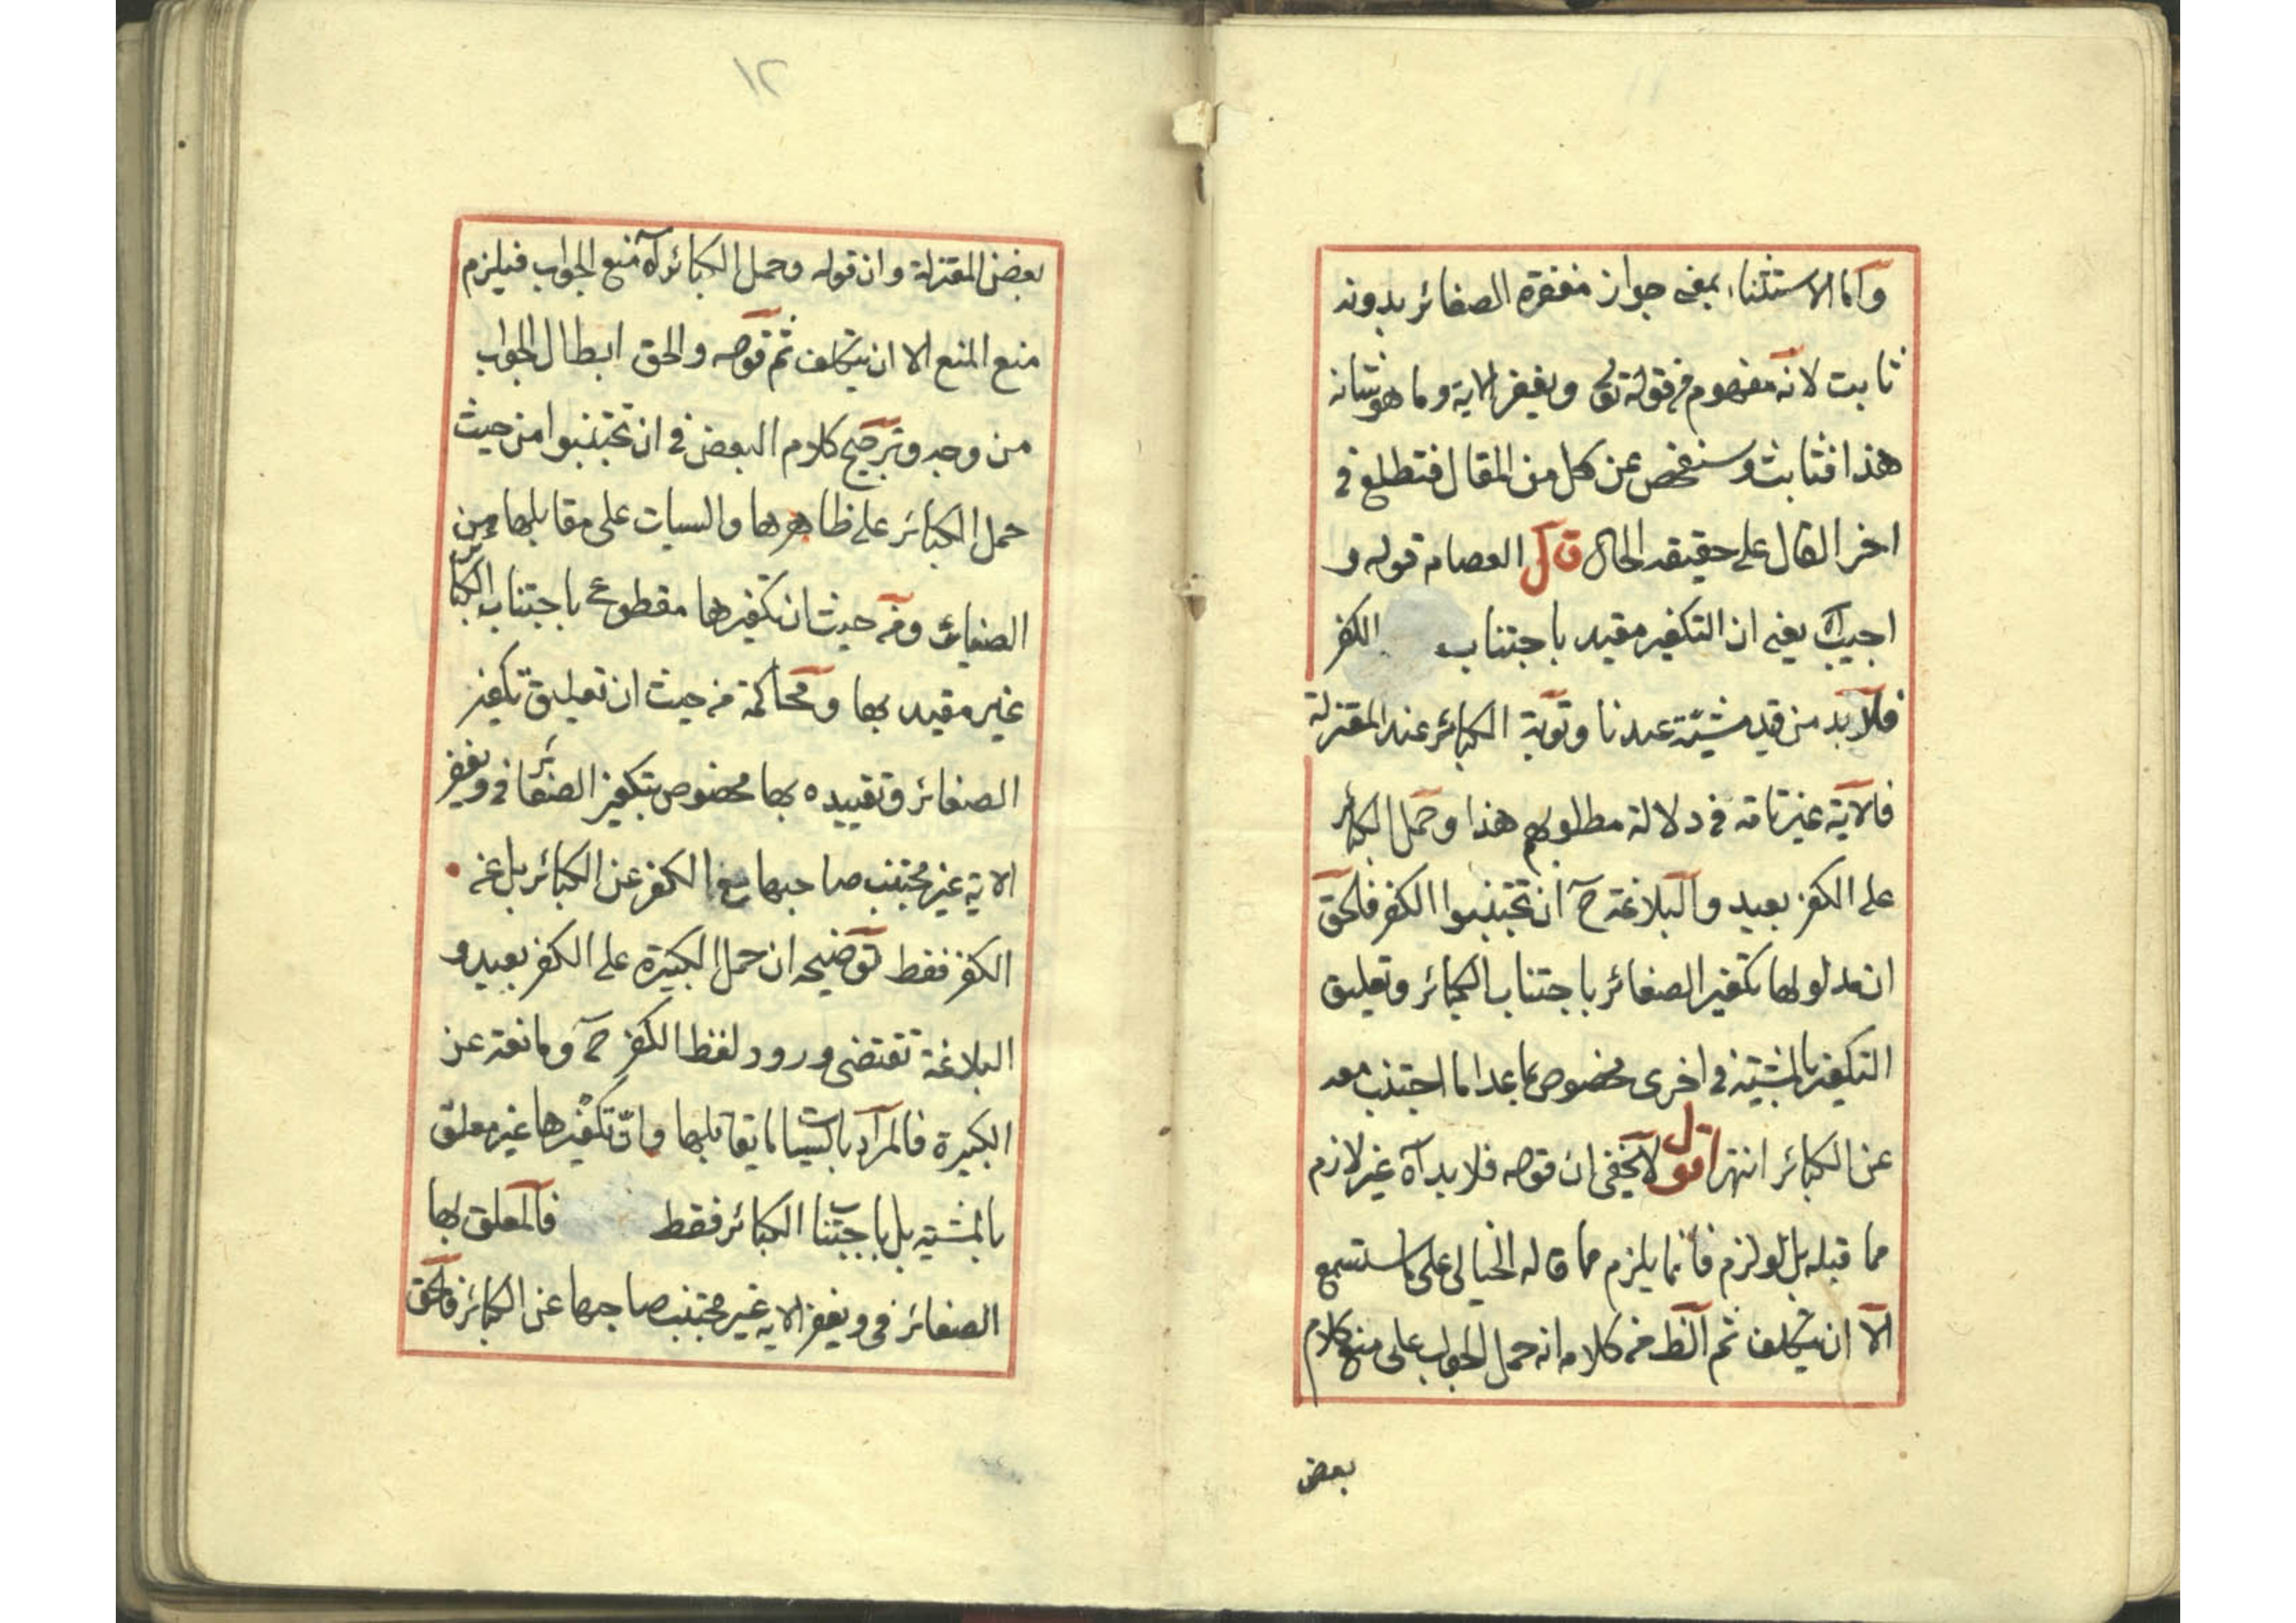 وأما الاستثناء بمعنى جواز مغفرة الصغائر بدونه
ثابت لانه مفهوم من قوله تع ويغفر الاية وما هو شانه
هذا فثابت وسنفحص عن كل من المقال فتطلع في
اخر المقال على حقيقة الحال قال العصام قوله و
اجيب آه يعنى ان التكفير مقيد باجتناب الكفر
فلا بد من قيد مشيّة عندنا وتوبة الكبائر عند المعتزلة
فالآية غير تامة في دلالة مطلوبهم هذا وحمل الكبائر
على الكفر بعيد والبلاغة ح ان تجتنبوا الكفر فالحق
ان مدلولها تكفير الصغائر باجتناب الكبائر وتعليق
التكفير بالمشية في اخرى مخصوص بما عدا ما اجتنب معه
عن الكبائر انتهى اقول لا يخفى ان قوله فلا بد آه غير لازم
مما قبله بل لو لزم فانما يلزم مما قاله الخيالى على ما ستسمع
الا ان يتكلف ثم الظ من كلامه انه حمل الجواب على منع كلام
بعض
١٢
بعض المعتزلة وان قوله وحمل الكبائر آه منع الجواب فيلزم
منع المنع الا ان يتكلف ثم قوله والحق ابطال الجواب
من وجه وترجيح كلام البعض في ان تجتنبوا من حيث
حمل الكبائر على ظاهرها والسيات على مقابلها من
الصغائر ومن حيث ان تكفيرها مقطوع باجتناب الكبائر
غير مقيد بها ومحاكمة من حيث ان تعليق تكفير
الصغائر وتقييده بها مخصوص بتكفير الصغائر في ويغفر
الاية غير مجتنب صاحبها مع الكفر عن الكبائر بل عن
الكفر فقط توضيحه ان حمل الكبيرة على الكفر بعيد و
البلاغة تقتضى ورود لفظ الكفر ح ومانعة عن
الكبيرة فالمراد بالسيات ما يقابلها وان تكفيرها غير معلق
بالمشية بل باجتناب الكبائر فقط فالمعلق بها
الصغائر في ويغفر الاية غير مجتنب صاحبها عن الكبائر فالحق